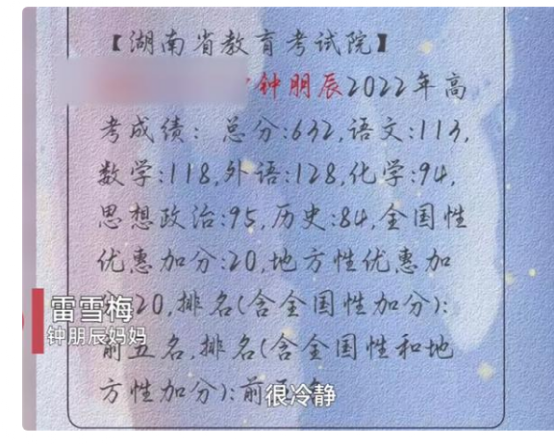 【湖南省教育考试院】
钟朋辰2022年高
考成绩：总分:632,语文:113,
数学:118,外语:128,化学:94,
思想政治:95,历史:84,全国性
优惠加分:20,地方性优惠加
20,排名(含全国性加分):
前五名,排名(含全国性和地
方性加分):前
雷雪梅
钟朋辰妈妈
很冷静